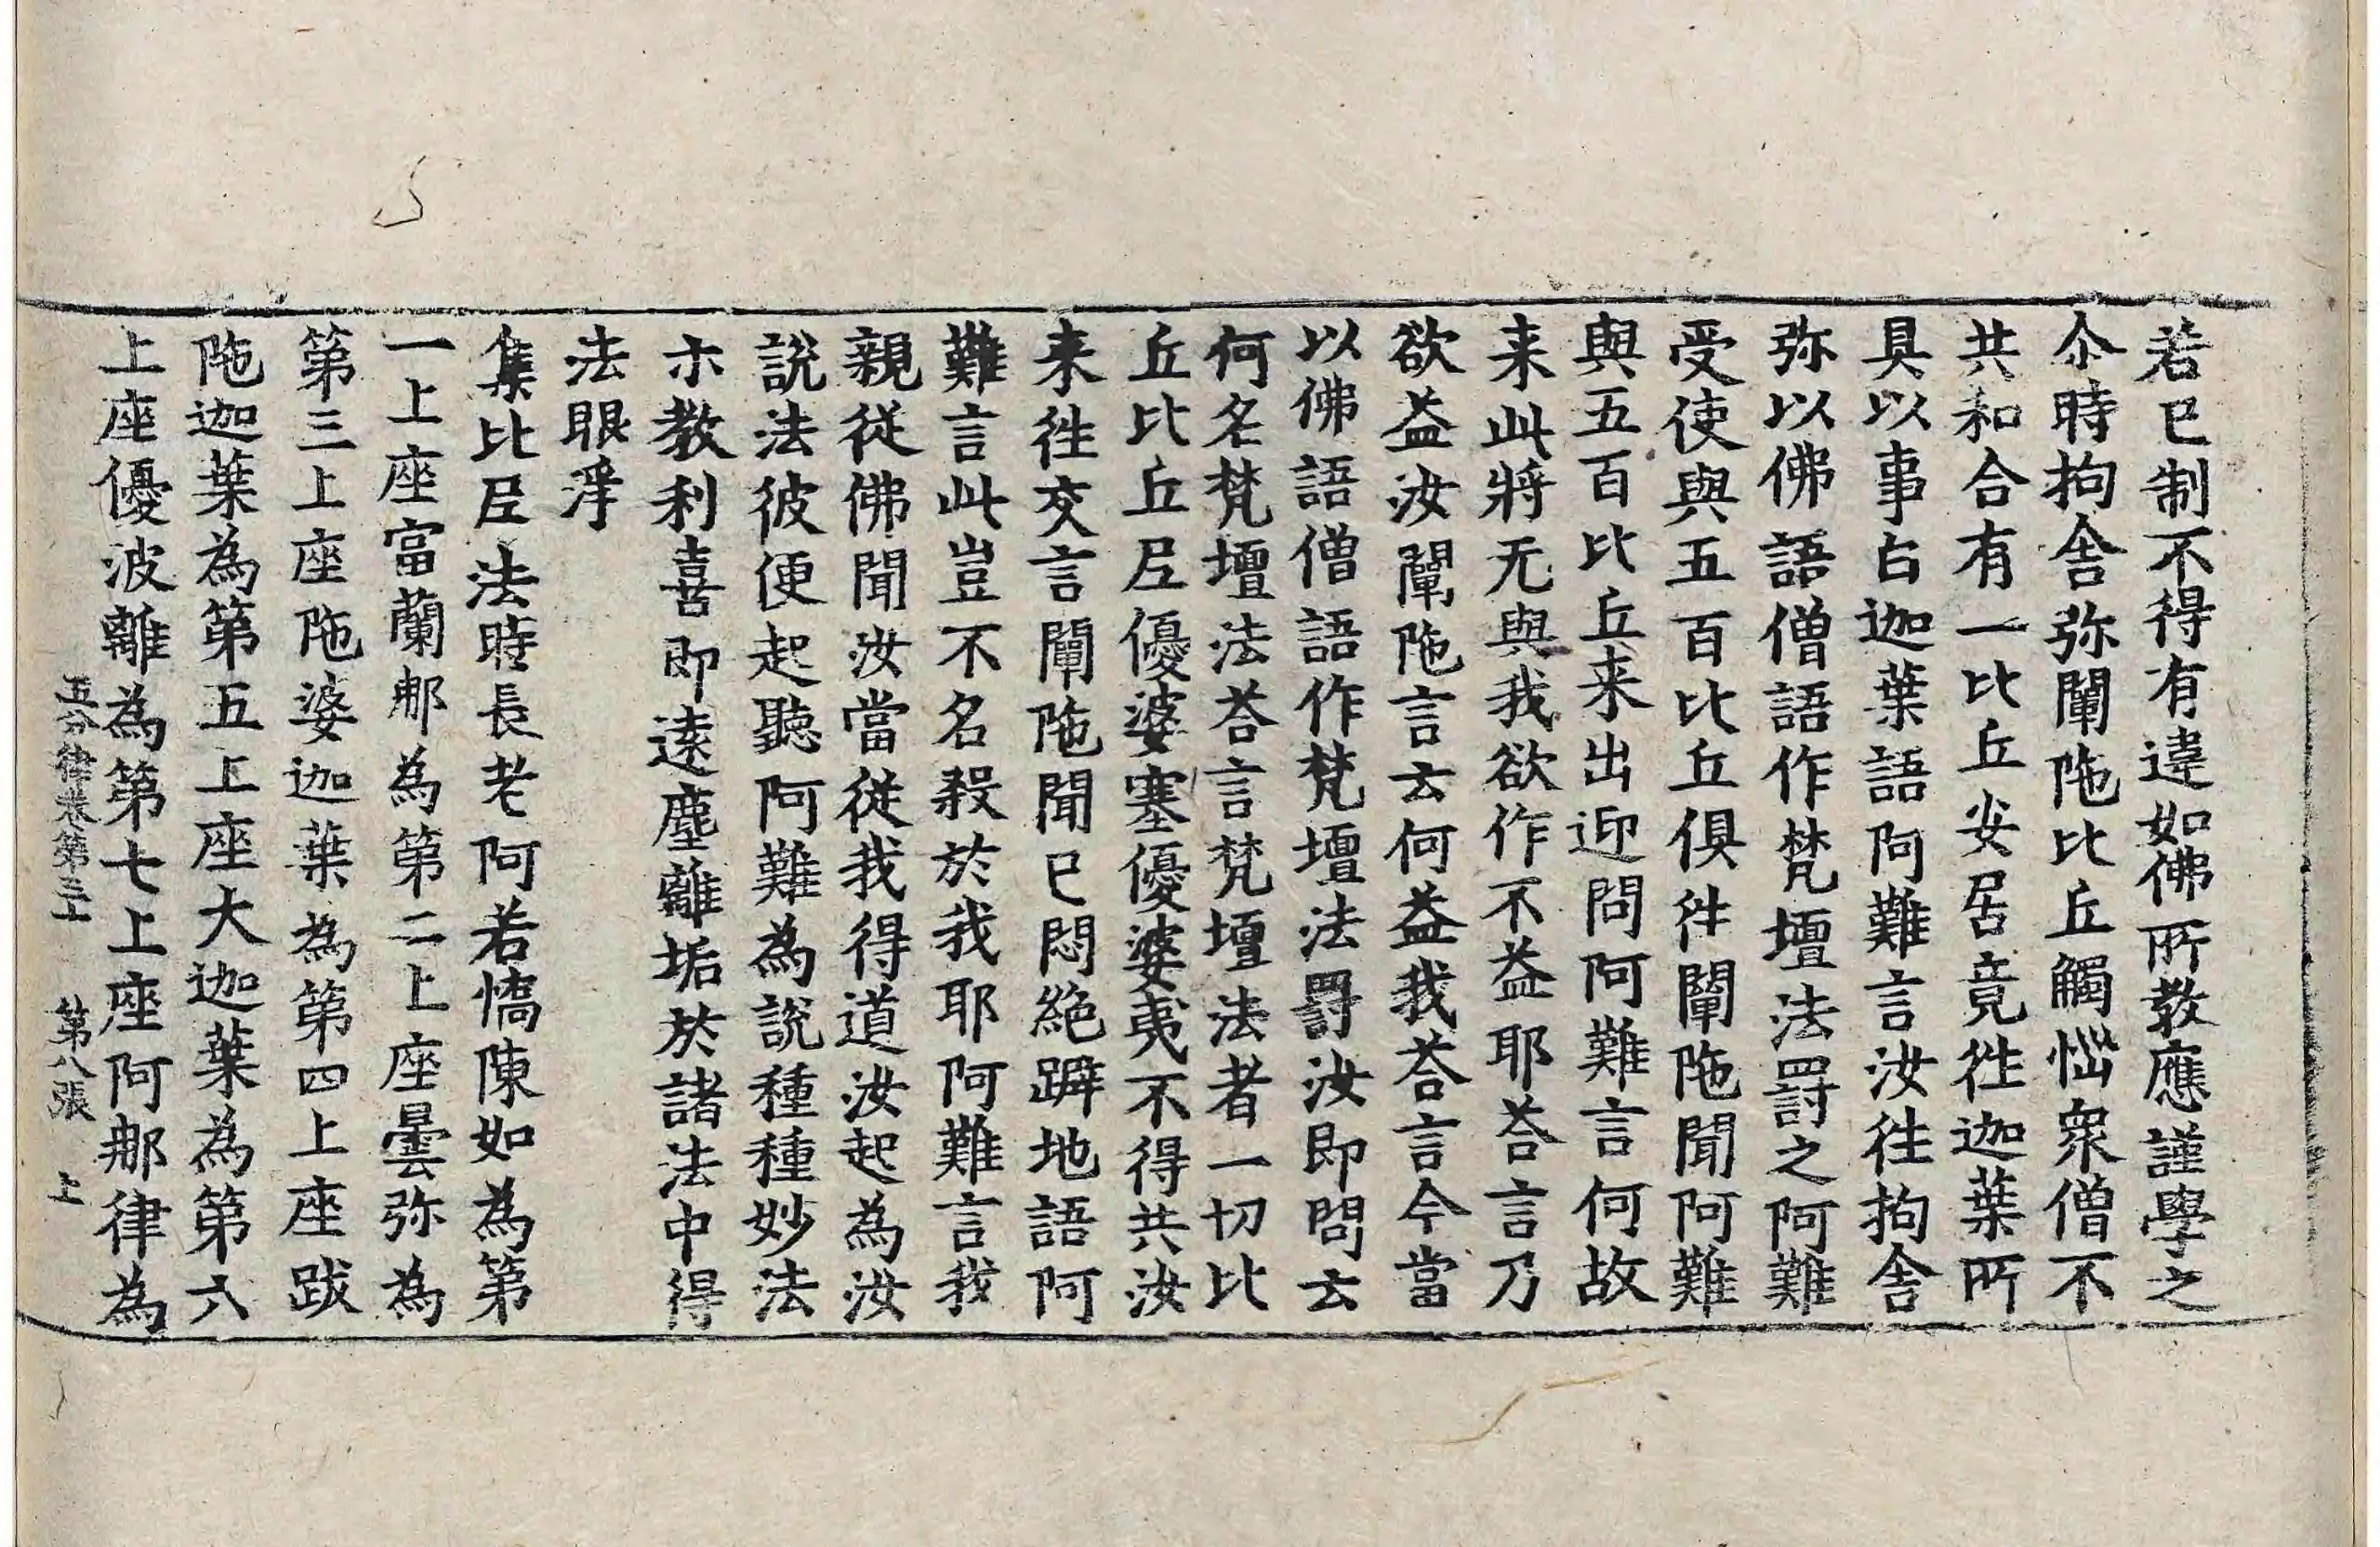 若已制不得有違如佛所教應謹學之
尒時拘舍弥闡陁比丘觸惱衆僧不
共和合有一比丘安居竟徃迦葉所
具以事白迦葉語阿難言汝徃拘舍
弥以佛語僧語作梵壇法罰之阿難
受使與五百比丘俱徃闡陁聞阿難
與五百比丘来出迎問阿難言何故
来此將无與我欲作不益耶荅言乃
欲益汝闡陁言云何益我荅言今當
以佛語僧語作梵壇法罰汝即問云
何名梵壇法荅言梵壇法者一切比
丘比丘尼優婆塞優婆夷不得共汝
来徃交言闡陁聞已悶絶躃地語阿
難言此豈不名殺於我耶阿難言我
親従佛聞汝當従我得道汝起為汝
說法彼便起聽阿難為說種種妙法
示教利喜即遠塵離垢於諸法中得
法眼淨
集比尼法時長老阿若憍陳如為第
一上座富蘭那為第二上座曇弥為
第三上座陁婆迦葉為第四上座跋
陁迦葉為第五上座大迦葉為第六
上座優波離為第七上座阿那律為
五分律卷第三十 第八張 上